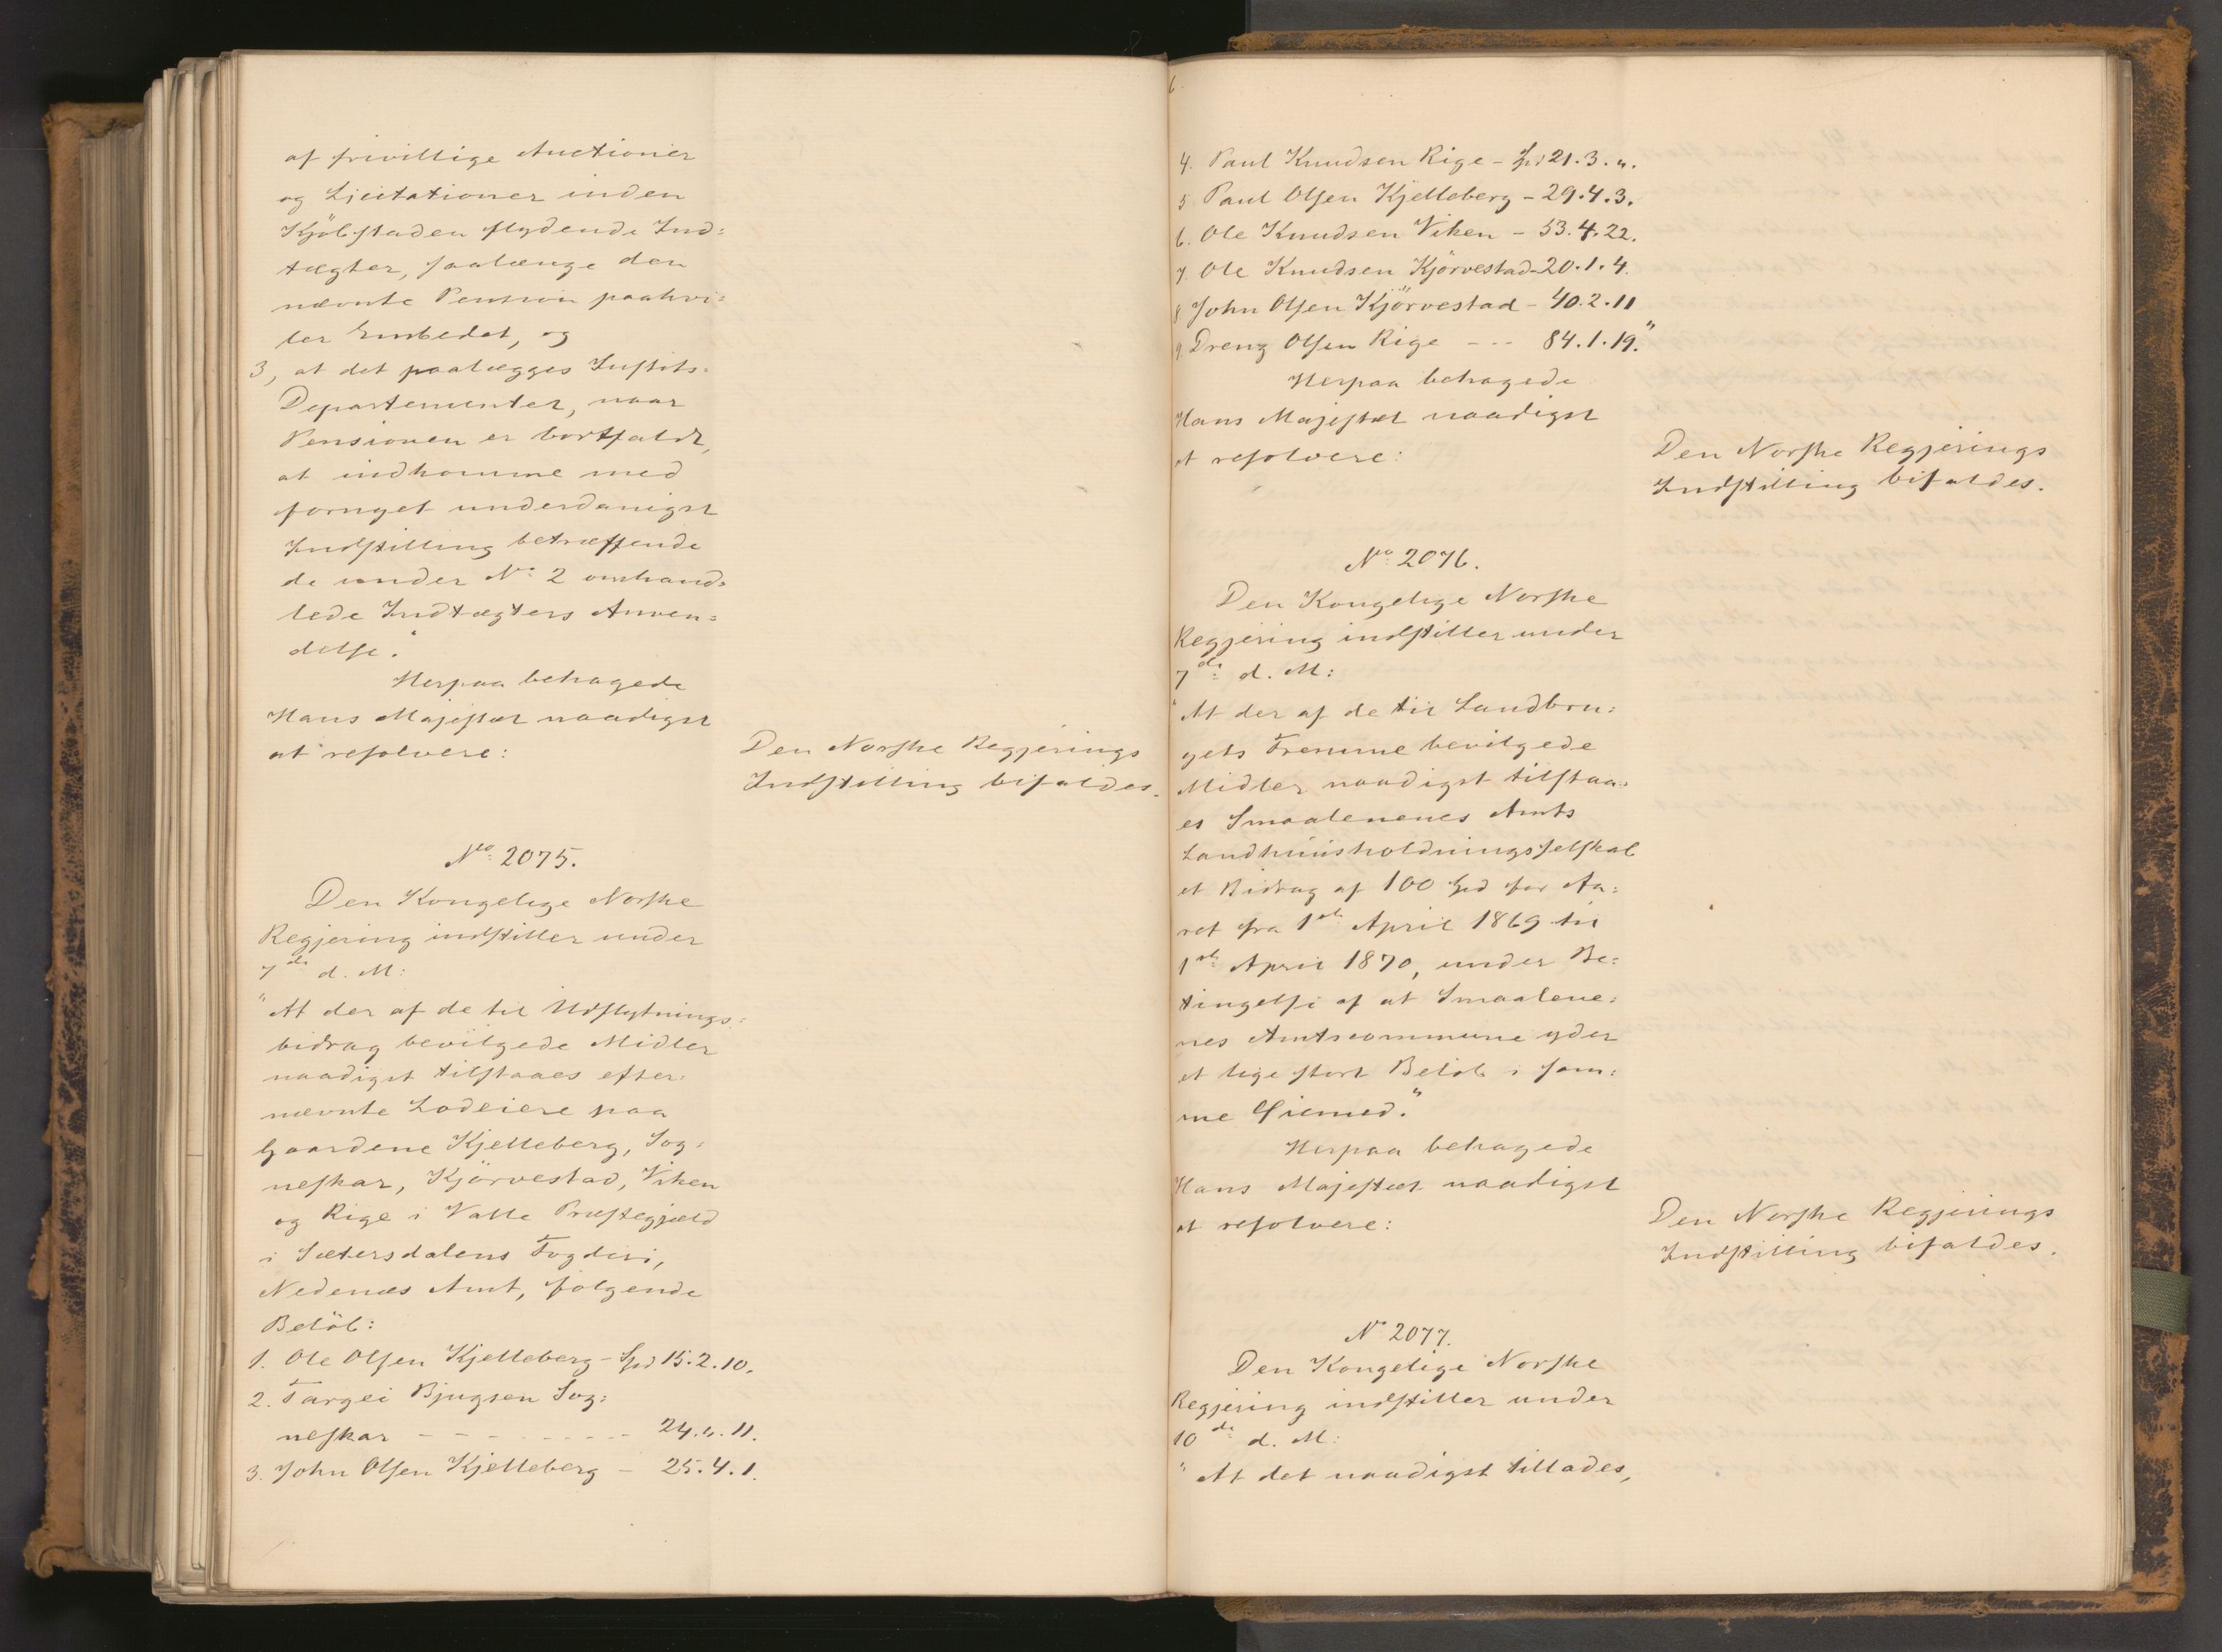 af frivillige Auctioner
og Licitationer inden
Kjöbstaden flydende Ind=
tægter, saalænge den
nævnte Pension paahvi=
ler Embedet, og
3, at det paalægges Justits=
Departementet, naar
Pensionen er bortfaldt,
at indkomme med
fornyet underdanigst
Indstilling betræffende
de under No 2 omhand=
lede Indtægters Anven=
delse."
Herpaa behagede
Hans Majestæt naadigst
at resolvere:
Den Norske Regjerings
Indstilling bifaldes.
No 2075.
Den Kongelige Norske
Regjering indstiller under
7de d. M:
"At der af de til Udflytnings=
bidrag bevilgede Midler
naadigst tilstaaes efter=
nævnte Lodeiere paa
Gaardene Kjelleberg, Sog=
neskar, Kjörvestad, Viken
og Rige i Valle Præstegjæld
i Sætersdalens Fogderi,
Nedenæs Amt, følgende
Belöb:
1. Ole Olsen Kjelleberg - Spd 15.2.10.
2. Targei Bjugsen Sog=
neskar - - - - - - - - 24.". 11.
3. John Olsen Kjelleberg - 25.4.1.
6
4. Paul Knudsen Rige - Spd 21.3.".
5 Paul Olsen Kjelleberg - 29.4.3.
6. Ole Knudsen Viken - 53.4.22.
7. Ole Knudsen Kjörvestad - 20.1.4.
8 John Olsen Kjörvestad - 40.2.11
9. Dreng Olsen Rige - - - 84.1.19."
Herpaa behagede
Hans Majestæt naadigst
at resolvere:
Den Norske Regjerings
Indstilling bifaldes.
No 2076.
Den Kongelige Norske
Regjering indstiller under
7de d. M:
"At der af de til Landbru=
gets Fremme bevilgede
Midler naadigst tilstaa=
es Smaalenenes Amts
Landhuusholdningsselskab
et Bidrag af 100 Spd for Aa=
ret fra 1ste April 1869 til
1ste April 1870, under Be=
tingelse af at Smaalene=
nes Amtscommune yder
et lige stort Belöb i sam=
me Øiemed."
Herpaa behagede
Hans Majestæt naadigst
at resolvere:
Den Norske Regjerings
Indstilling bifaldes.
No 2077.
Den Kongelige Norske
Regjering indstiller under
10de d. M:
"At det naadigst tillades,